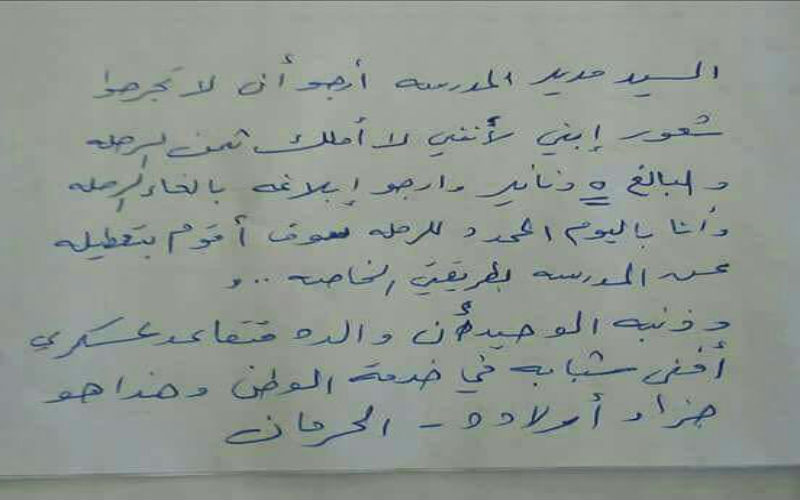 السيد مدير المدرسه أرجو أن لا تجرحوا
شعور إبني لأنني لا أملك ثمن الرحله
والبالغ 5 دنانير وارجو إبلاغه بالغاء الرحله
وأنا باليوم المحدد للرحله سوف أقوم بتعطيله
عن المدرسه بطريقتي الخاصه ..و
وذنبه الوحيد أن والده متقاعد عسكري
أفنى شبابه في خدمة الوطن وهذا هو
جزاء أولاده - الحرمان